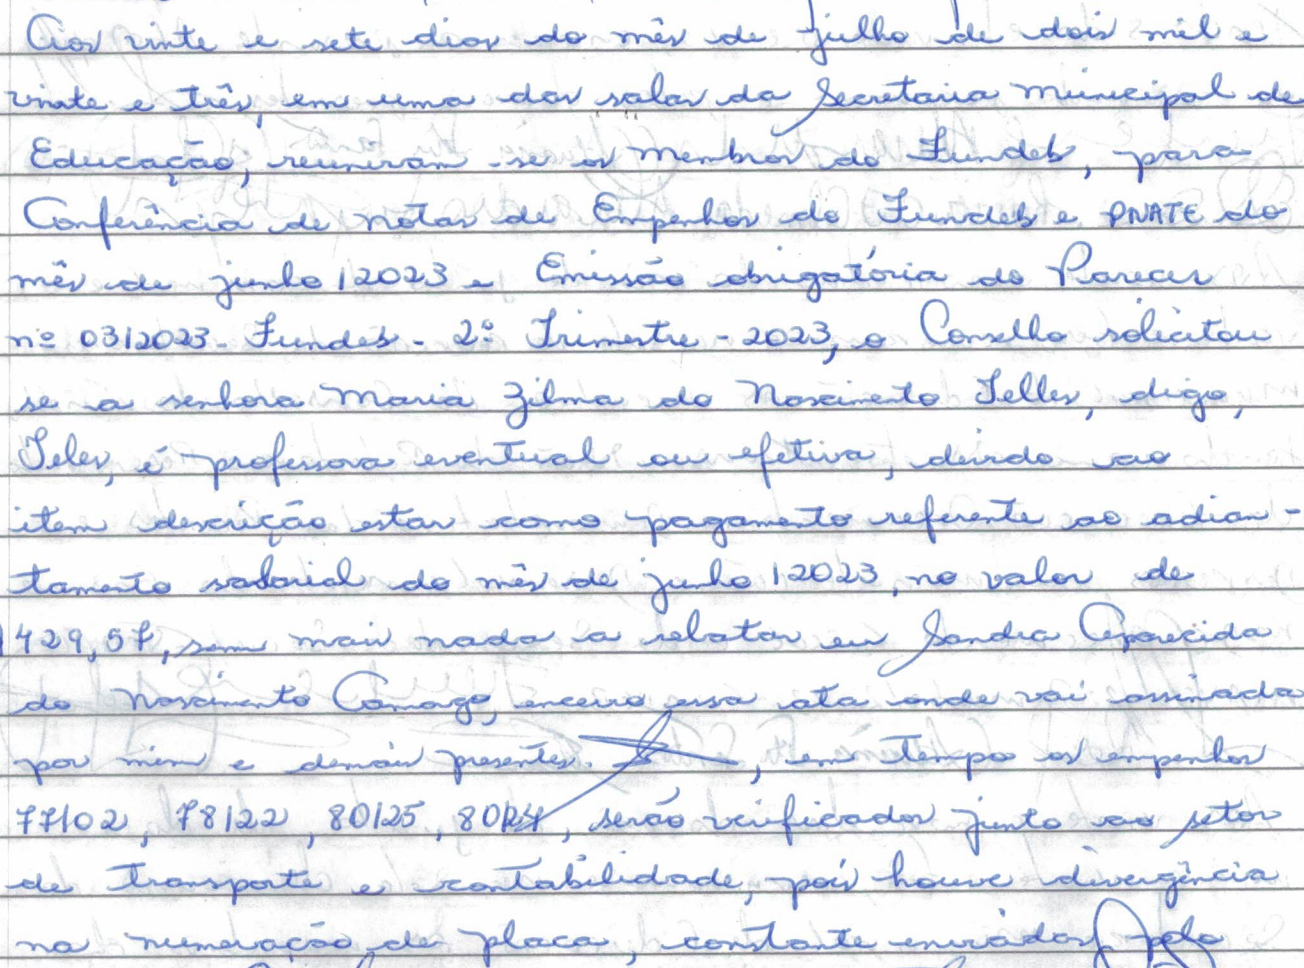 Aos vinte e sete dias do mês de julho de dois mil e
vinte e três, em uma das salas da Secretaria Municipal de
Educação, reuniram-se os membros do Fundeb, para
Conferência de notas de Empenhos do Fundeb e PNATE do
mês de junho/2023 e Emissão obrigatória do Parecer
nº 03/2023 - Fundeb - 2º Trimestre - 2023, o Conselho solicitou
se a senhora Maria Zilma do Nascimento Telles, digo,
Teles, é professora eventual ou efetiva, devido ao
item descrição estar como pagamento referente ao adian-
tamento salarial do mês de junho/2023, no valor de
1429,57, sem mais nada a relatar eu Sandra Aparecida
do Nascimento Camargo, encerro essa ata onde vai assinada
por mim e demais presentes. , em tempo os empenhos
77/02, 78/22, 80/25, 80/24, serão verificados junto ao setor
de transporte e contabilidade, pois houve divergência
na numeração de placa, constante enviados pelo